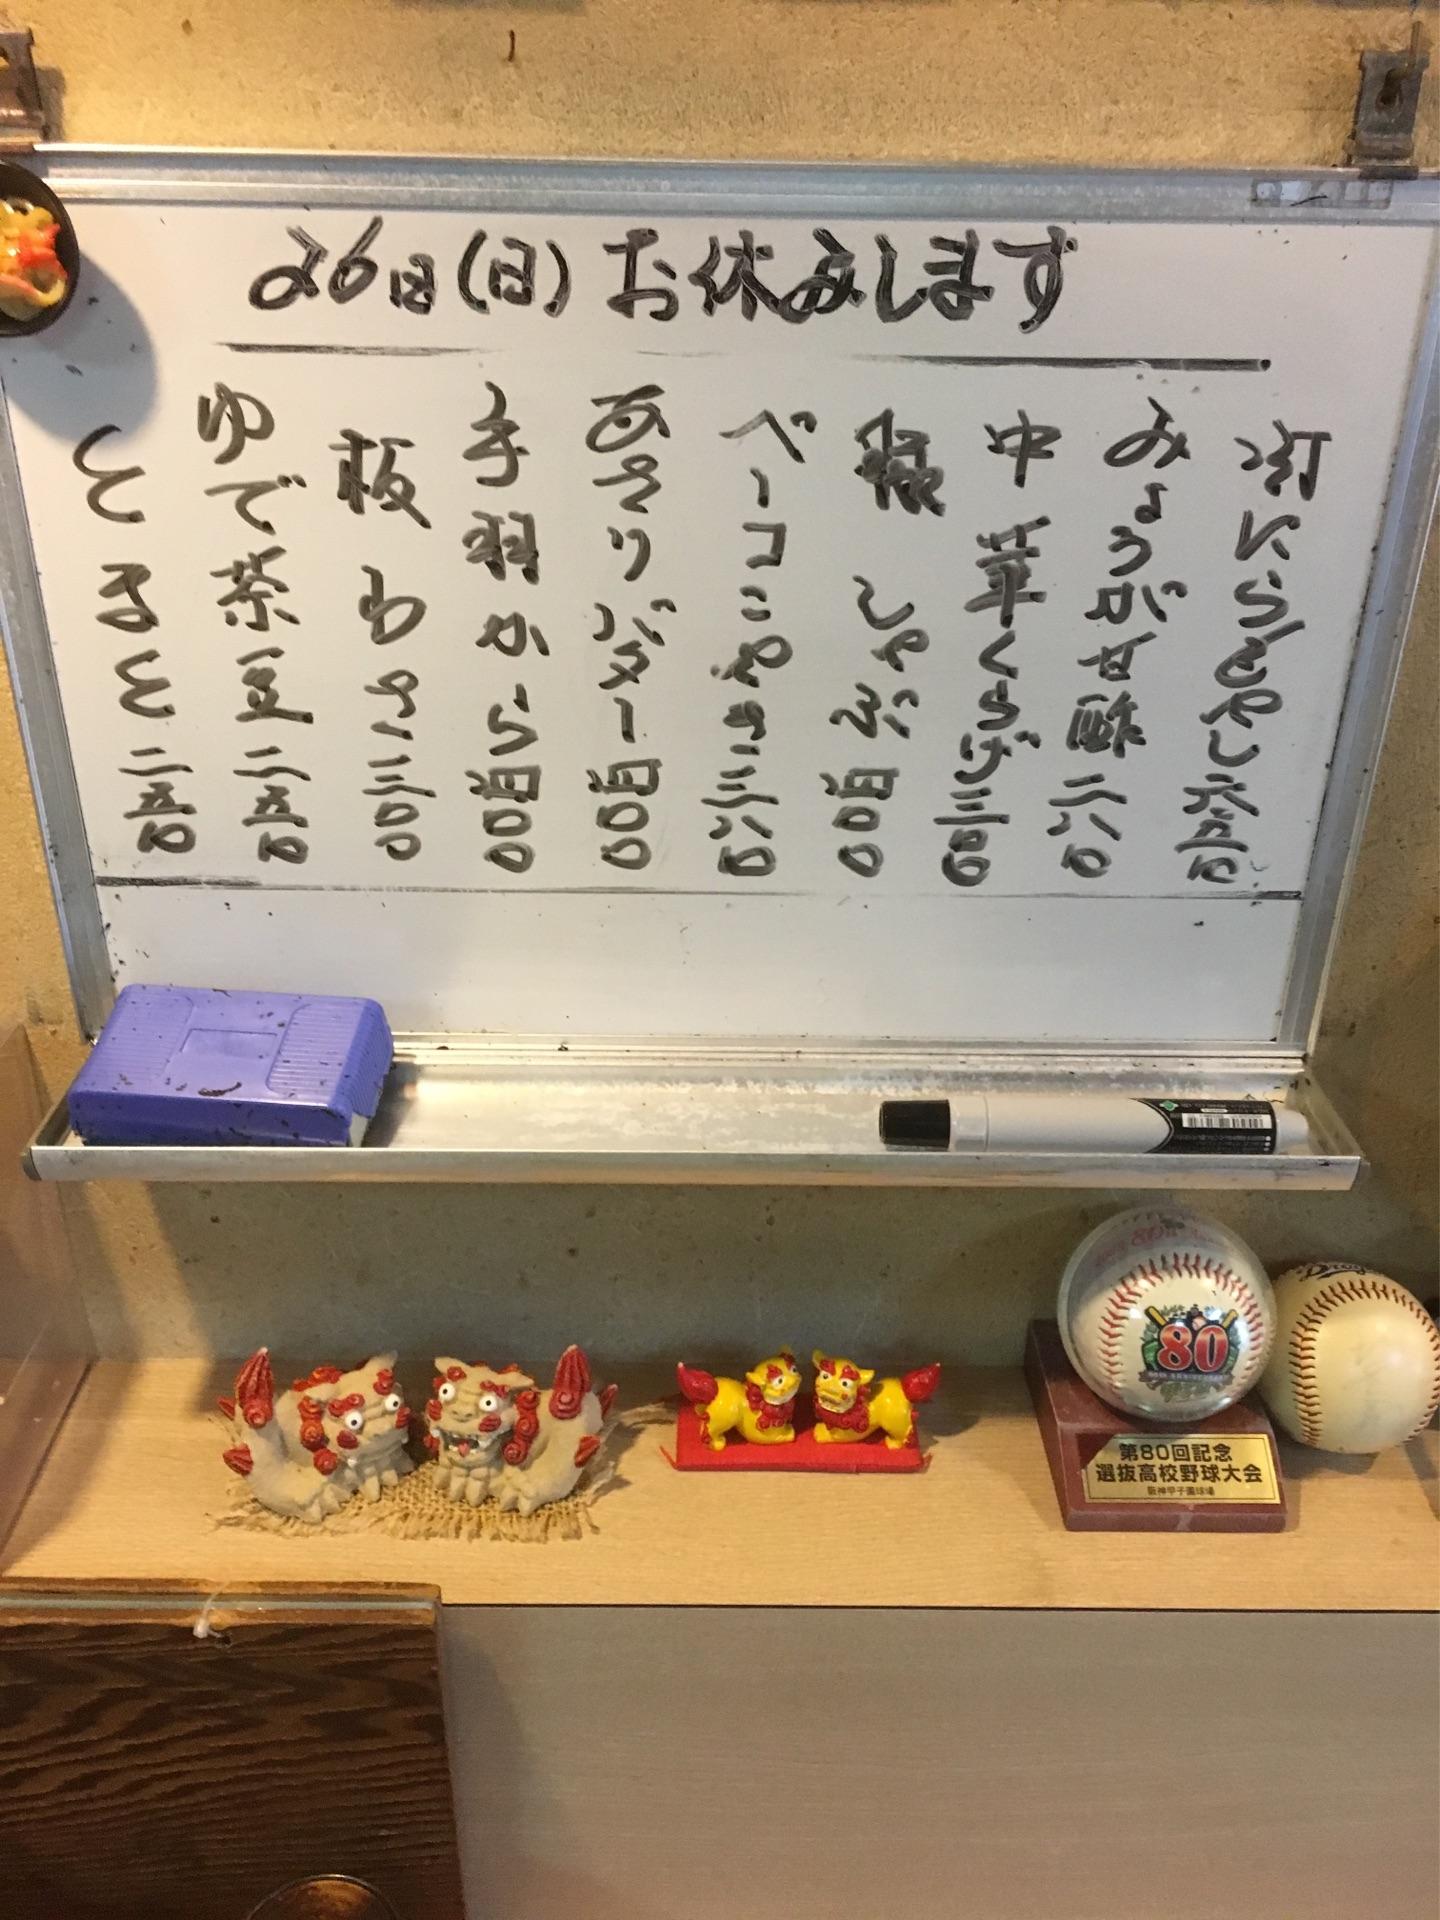 26日(日)お休みします
にらもやし 六五〇
みょうが甘酢 二八〇
中華くらげ 三〇〇
豚しゃぶ 四〇〇
ベーコンやさい 三八〇
あさりバター 四〇〇
手羽から 四〇〇
板わさ 三〇〇
ゆで茶豆 二五〇
とまと 二五〇
80
第80回記念
選抜高校野球大会
阪神甲子園球場